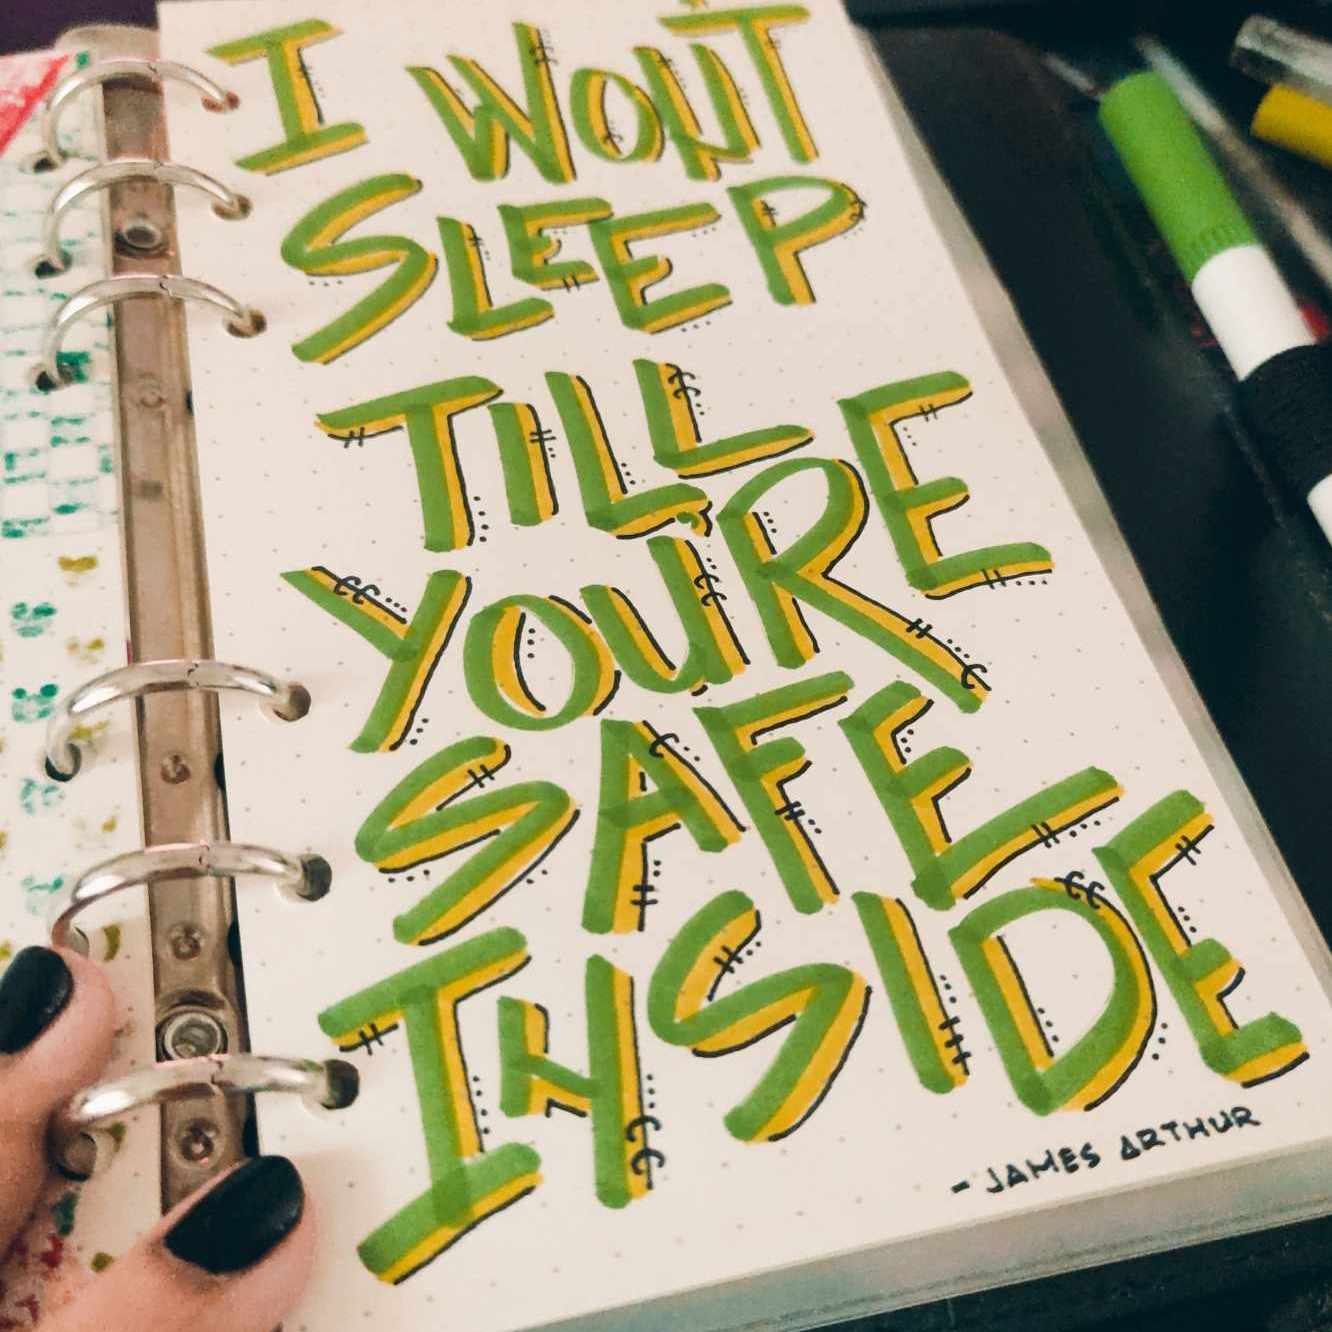 I WON'T
SLEEP
TILL
YOU'RE
SAFE
INSIDE
- JAMES ARTHUR